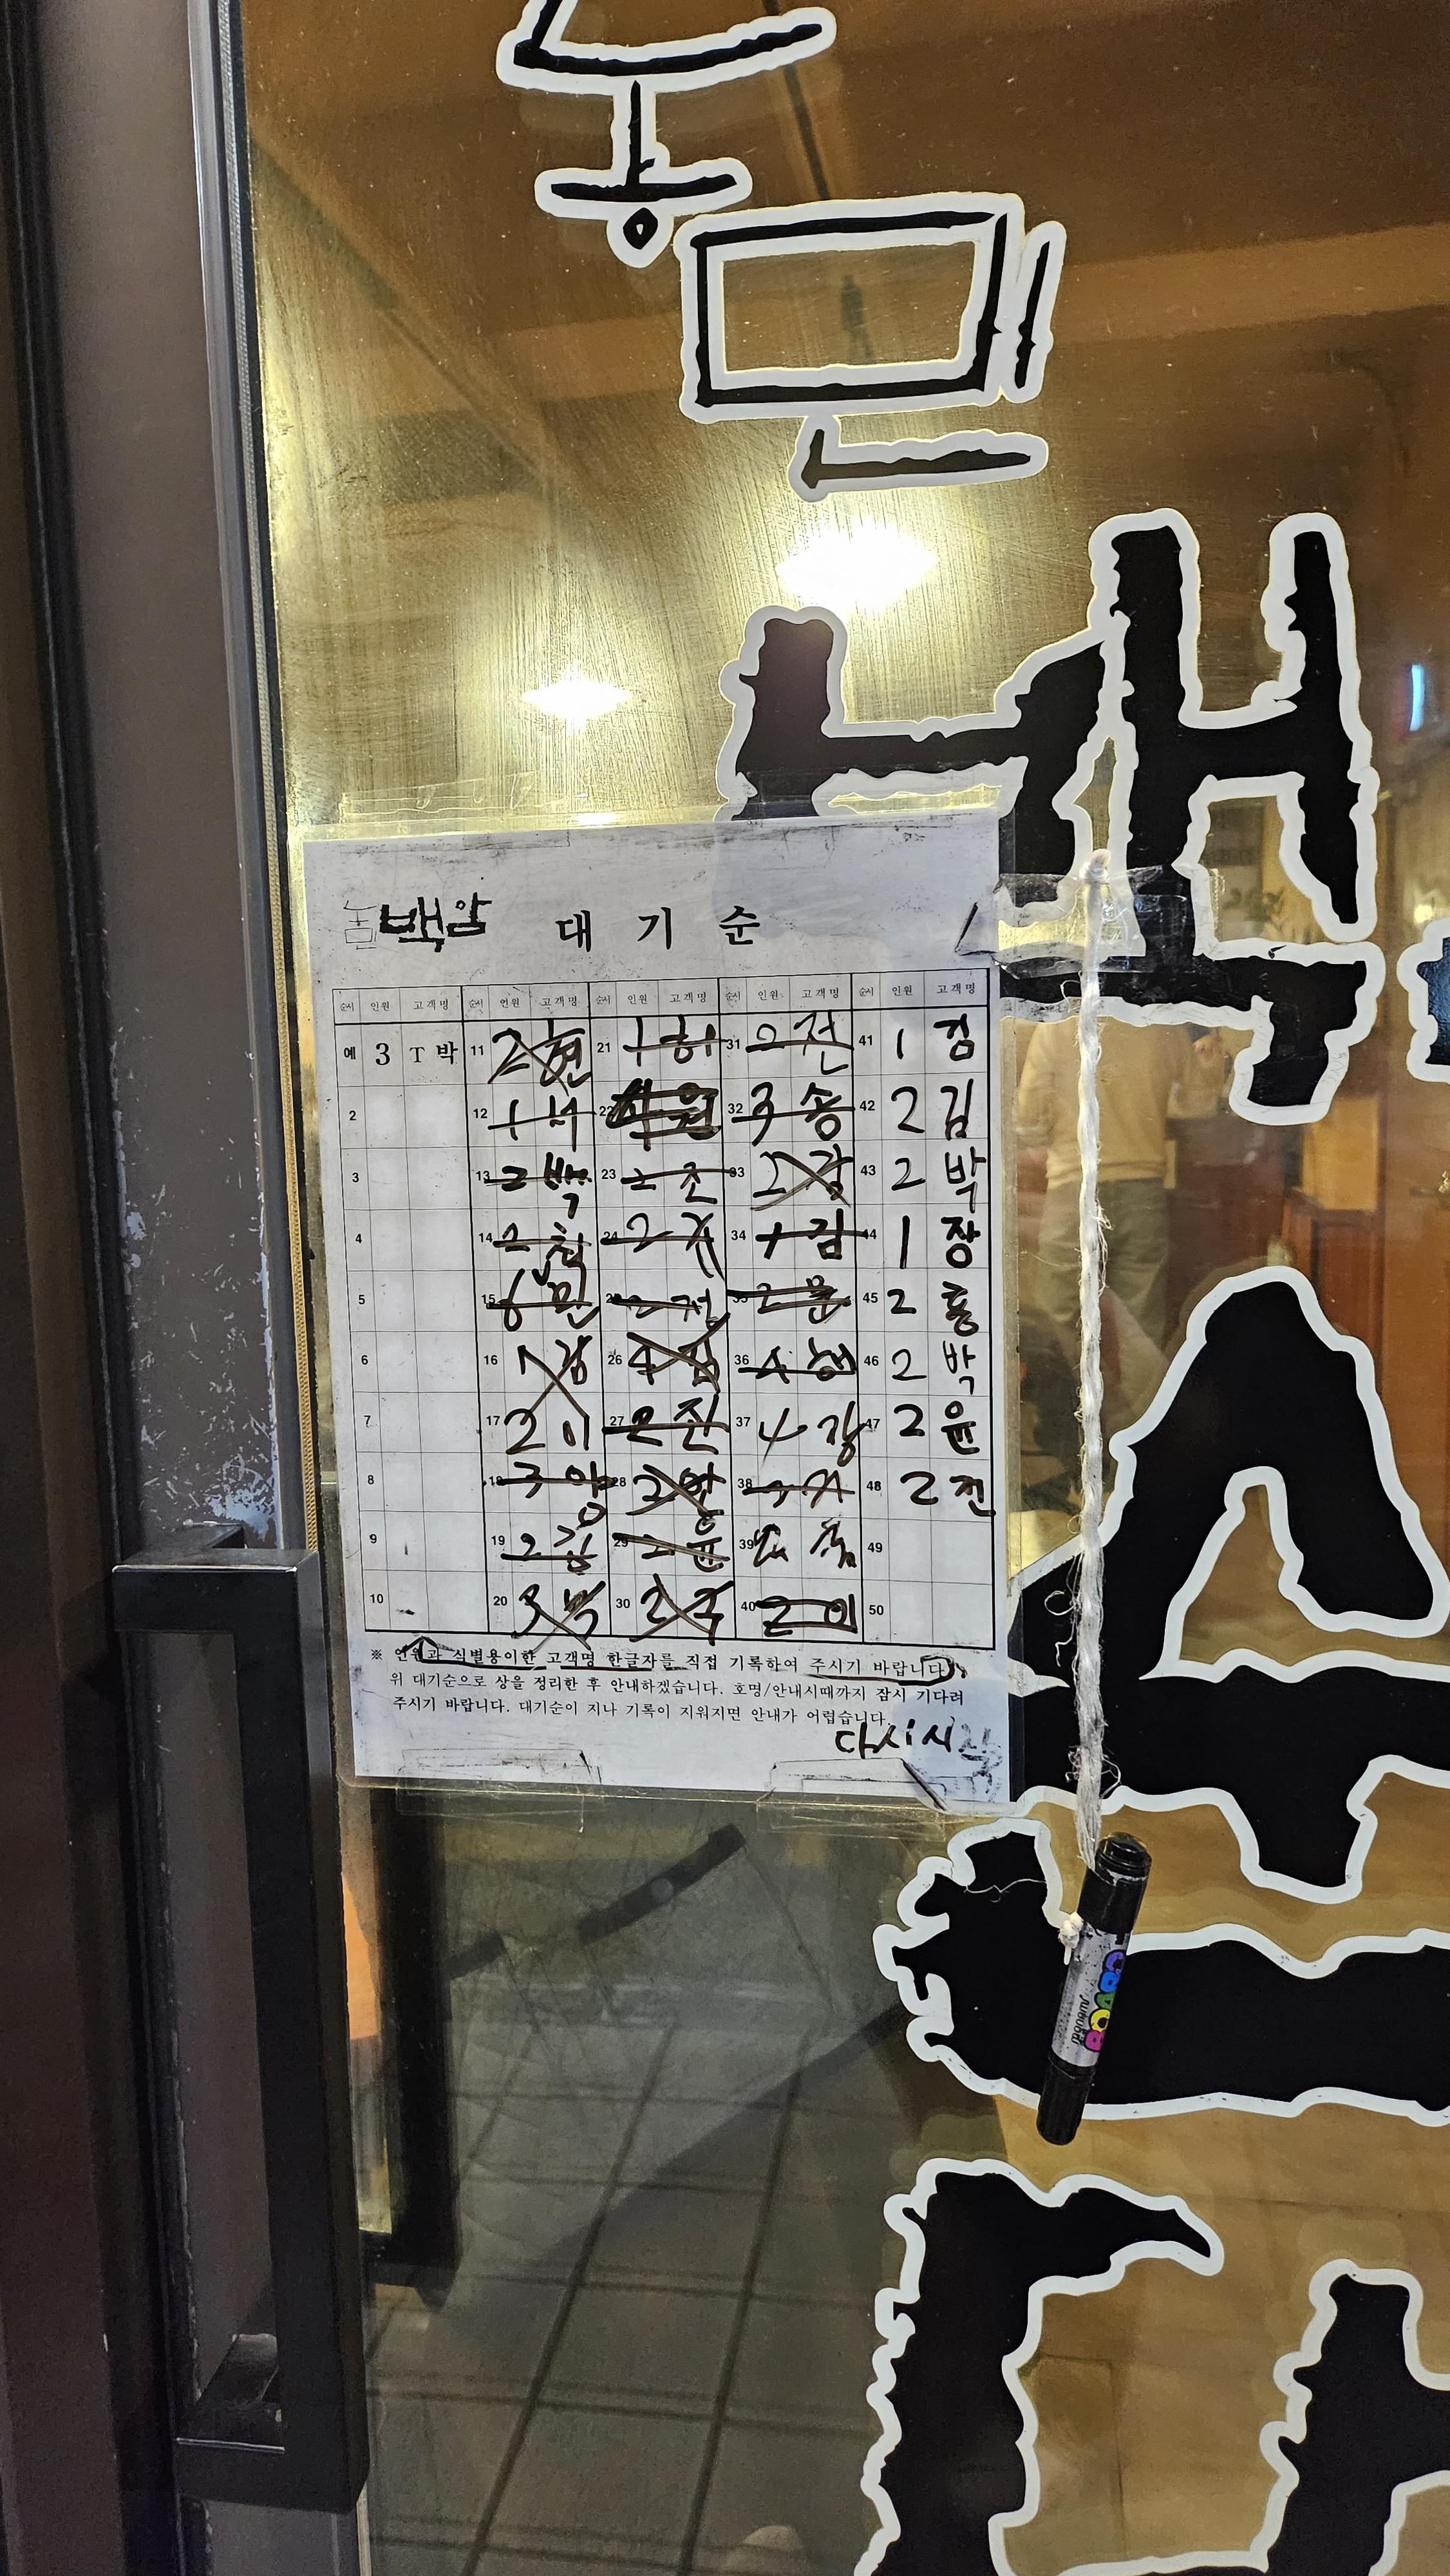 농민
백암
농민 백암 대 기 순
순서 인원 고객명 순서 인원 고객명 순서 인원 고객명 순서 인원 고객명 순서 인원 고객명
예 3 T 박 11 2 현 21 1 허 31 2 전 41 1 김
2 12 1 서 22 원 32 3 송 42 2 김
3 13 2 백 23 2 조 33 2 강 43 2 박
4 14 2 최 24 2 34 1 김 44 1 장
5 15 6 민 2 정 35 2 윤 45 2 홍
6 16 1 김 26 4 김 36 4 46 2 박
7 17 2 이 27 2 진 37 4 강 47 2 윤
8 18 3 양 28 2 38 48 2 전
9 19 2 김 29 2 윤 39 49
10 20 3 박 30 2 주 40 2 이 50
※ 인원과 식별용이한 고객명 한글자를 직접 기록하여 주시기 바랍니다.
위 대기순으로 상을 정리한 후 안내하겠습니다. 호명/안내시때까지 잠시 기다려
주시기 바랍니다. 대기순이 지나 기록이 지워지면 안내가 어렵습니다.
다시시작